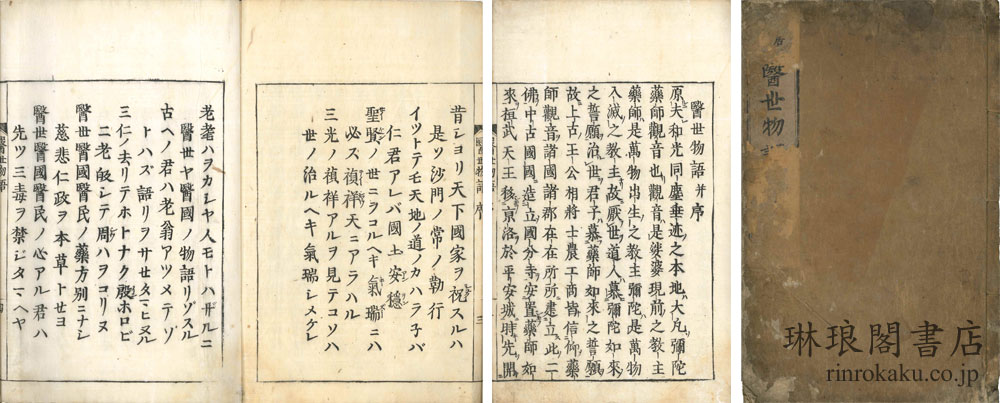 醫世物
琳琅閣書店
rinrokaku.co.jp
醫世物語并序
原夫和光同塵垂迹之本地大凡彌陀
藥師觀音也觀音是娑婆現前之教主
藥師是萬物出生之教主彌陀是萬物
入滅之教主故厭世道人慕彌陀如來
之誓願治世君子慕藥師如來之誓願
故上古王公相將士農工商皆信仰藥
師觀音諸國諸郡在在所所建立此二
佛中古國國造立國分寺安置藥師如
來桓武天王移京洛於平安城時先開
醫世物語 序
三
昔シヨリ天下國家ヲ祝スルハ
是ソ沙門ノ常ノ勤行
イツトテモ天地ノ道ノカハラ子バ
仁君アレバ國土安穩
聖賢ノ世ニヲコルヘキ氣瑞ニハ
必ス禎祥天ニアラハル
三光ノ禎祥アルヲ見テコソハ
世ノ治ルヘキ氣瑞シメケレ
老耄ハヲカシヤ人モトハザルニ
醫世ヤ醫國ノ物語リゾスル
古ヘノ君ハ老翁アツメテゾ
トハズ語リヲサセタマヒヌル
三仁ノ去リテホトナク殷ホロビ
二老皈シテ周ハヲコリヌ
醫世醫國醫民ノ藥方別ニナシ
慈悲仁政ヲ本草トセヨ
醫世醫國醫民ノ心アル君ハ
先ツ三毒ヲ禁シタマヘヤ
醫世物語